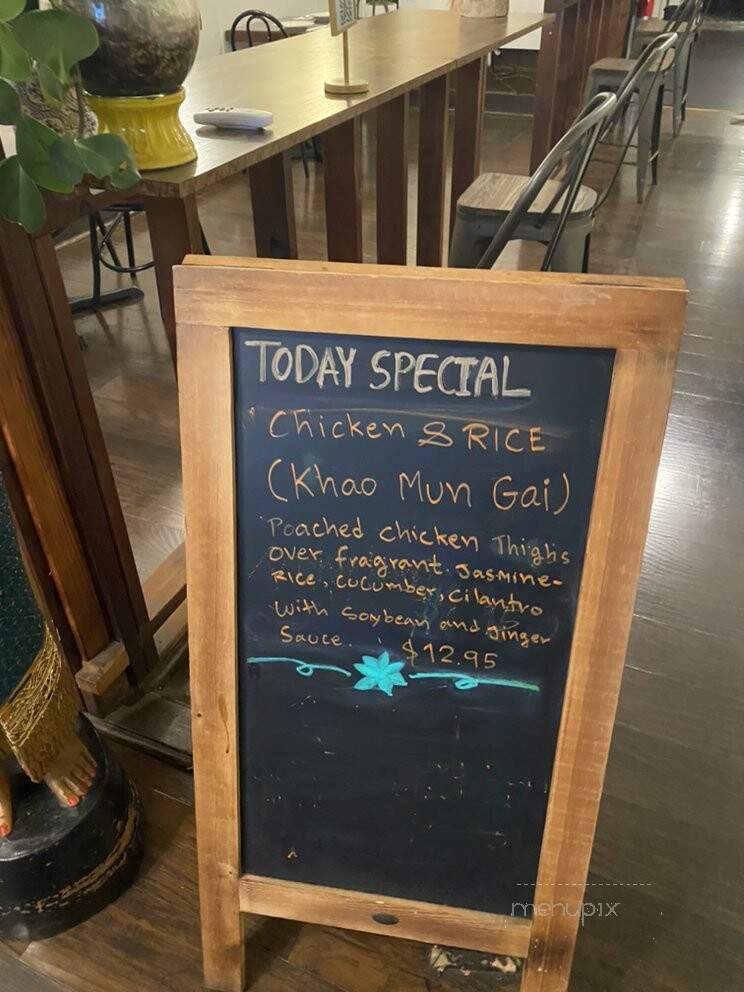 TODAY SPECIAL
Chicken & RICE
(Khao Mun Gai)
Poached chicken Thighs
over fragrant Jasmine-
Rice, cucumber, cilantro
with soybean and ginger
Sauce. $12.95
menupix